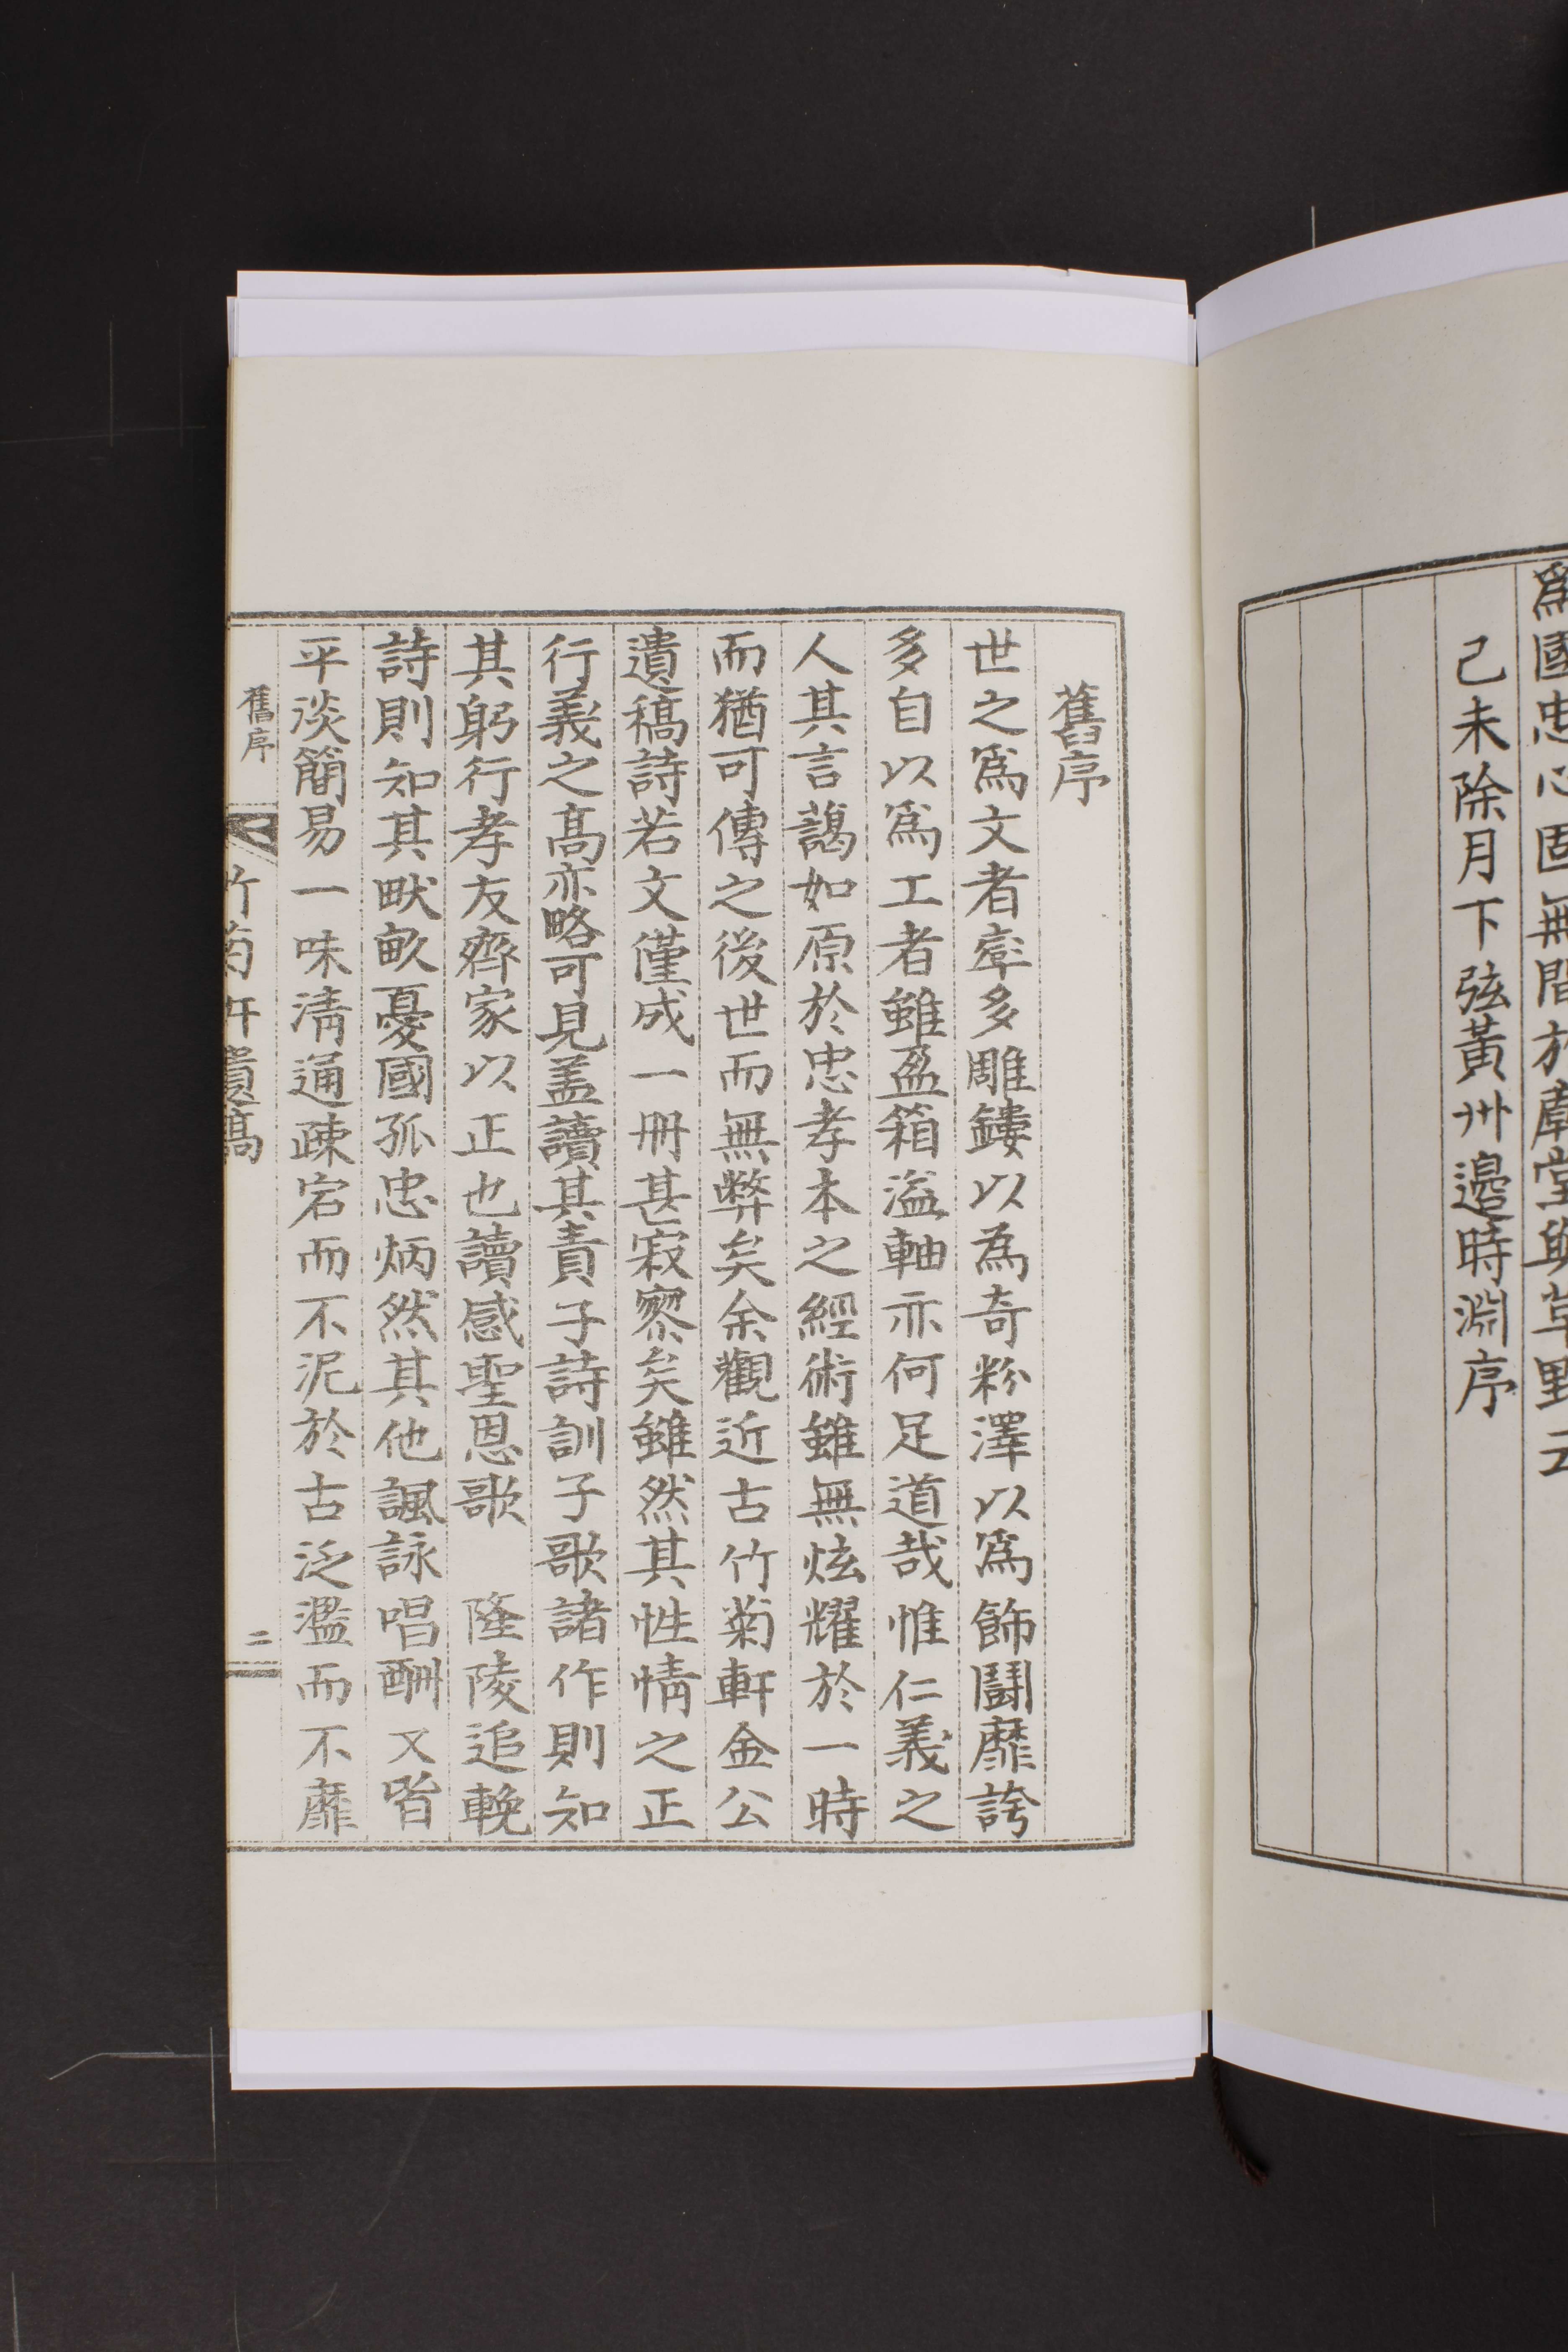 爲國忠心固無間於廊堂與草野云
己未除月下弦黃州邊時淵序
舊序
世之爲文者率多雕鏤以為奇粉澤以爲飾鬪靡誇
多自以爲工者雖盈箱溢軸亦何足道哉惟仁義之
人其言藹如原於忠孝本之經術雖無炫耀於一時
而猶可傳之後世而無弊矣余觀近古竹菊軒金公
遺稿詩若文僅成一冊甚寂寥矣雖然其性情之正
行義之高亦略可見盖讀其責子詩訓子歌諸作則知
其躬行孝友齊家以正也讀感聖恩歌 隆陵追輓
詩則知其畎畝憂國孤忠炳然其他諷詠唱酬又皆
平淡簡易一味淸通疎宕而不泥於古泛濫而不靡
舊序
竹菊軒遺稿
二